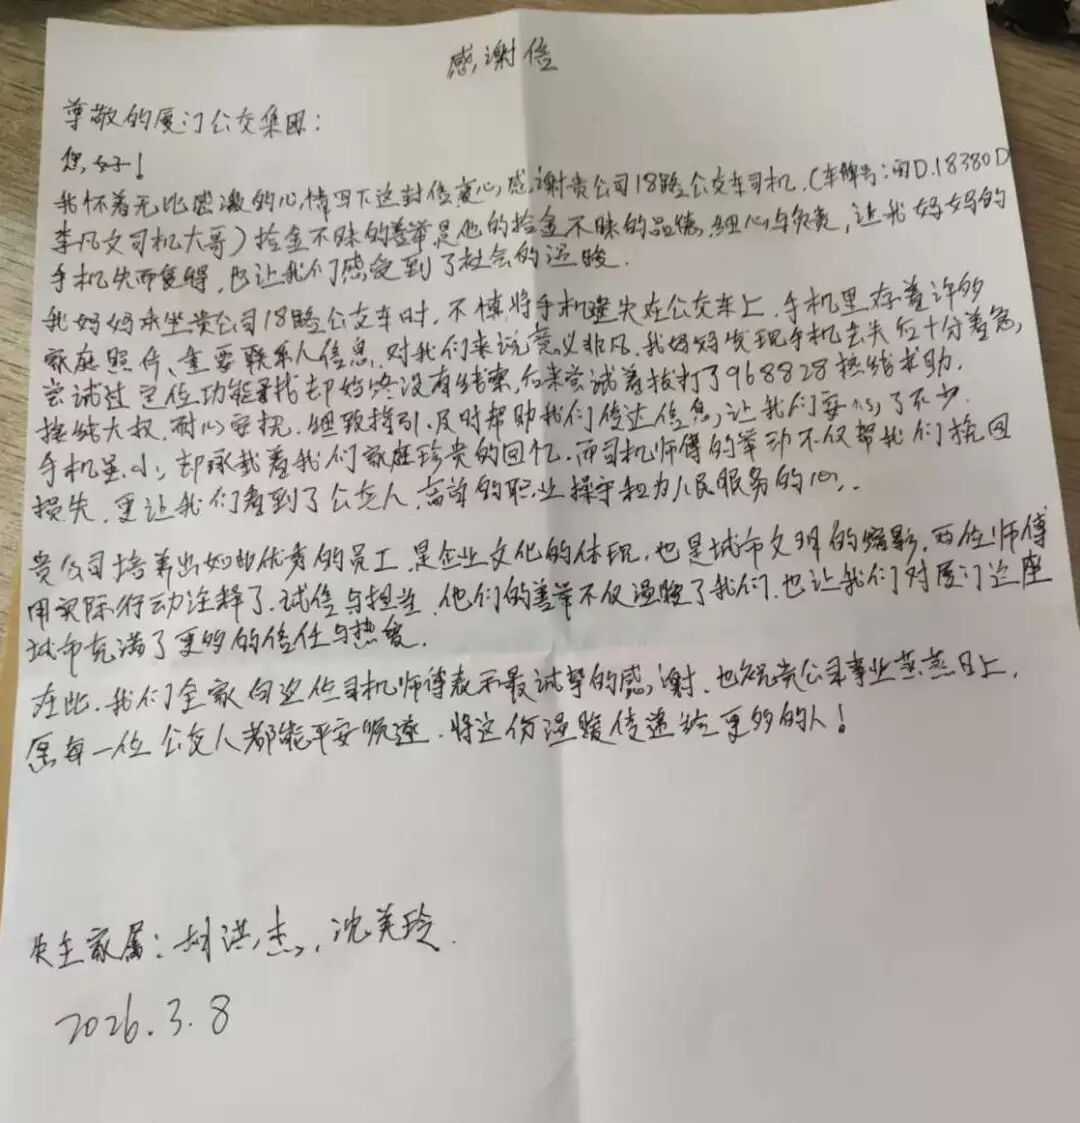 感谢信
尊敬的厦门公交集团：
您好！
我怀着无比感激的心情写下这封信衷心感谢贵公司18路公交车司机.（车牌号：闽D.18380D
李凡文司机大哥）拾金不昧的善举是他的拾金不昧的品德，细心与负责，让我妈妈的
手机失而复得，also让我们感受到了社会的温暖.
我妈妈乘坐贵公司18路公交车时，不慎将手机遗失在公交车上，手机里存着许多
家庭照片、重要联系人信息，对我们来说意义非凡.我妈妈发现手机丢失后十分着急，
尝试过定位功能寻找却始终没有线索，后来尝试着拨打了968828热线求助.
接线大叔，耐心安抚.细致指引.及时帮助我们传达信息，让我们安心了不少.
手机虽小，却承载着我们家庭珍贵的回忆.而司机师傅的举动不仅帮我们挽回
损失，更让我们看到了公交人高尚的职业操守和为人民服务的心.
贵公司培养出如此优秀的员工，是企业文化的体现，也是城市文明的缩影.两位师傅
用实际行动诠释了.诚信与担当，他们的善举不仅温暖了我们.也让我们对厦门这座
城市充满了更多的信任与热爱.
在此，我们全家向这位司机师傅表示最诚挚的感谢，也祝贵公司事业蒸蒸日上，
愿每一位公交人都能平安顺遂.将这份温暖传递给更多的人！
失主家属：胡洪杰，沈美玲.
2026.3.8